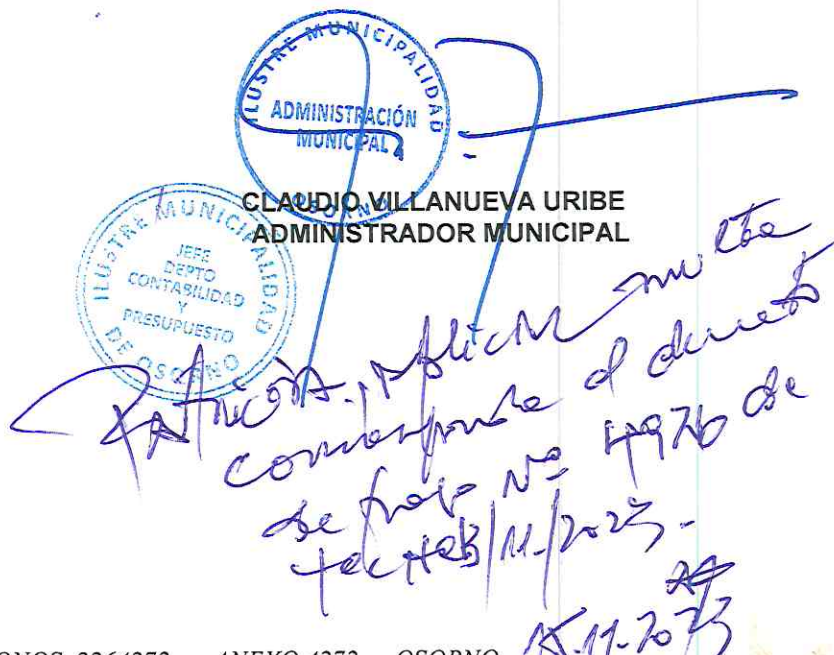 ILUSTRE MUNICIPALIDAD
ADMINISTRACIÓN
MUNICIPAL
OSORNO
CLAUDIO VILLANUEVA URIBE
ADMINISTRADOR MUNICIPAL
ILUSTRE MUNICIPALIDAD
JEFE
DEPTO
CONTABILIDAD
Y
PRESUPUESTO
DE OSORNO
Patricia, Aplicar multa
corresponde al decreto
de pago Nº 4976 de
fecha /11/2023.-
15.11.2023
ANEXO 4272 OSORNO